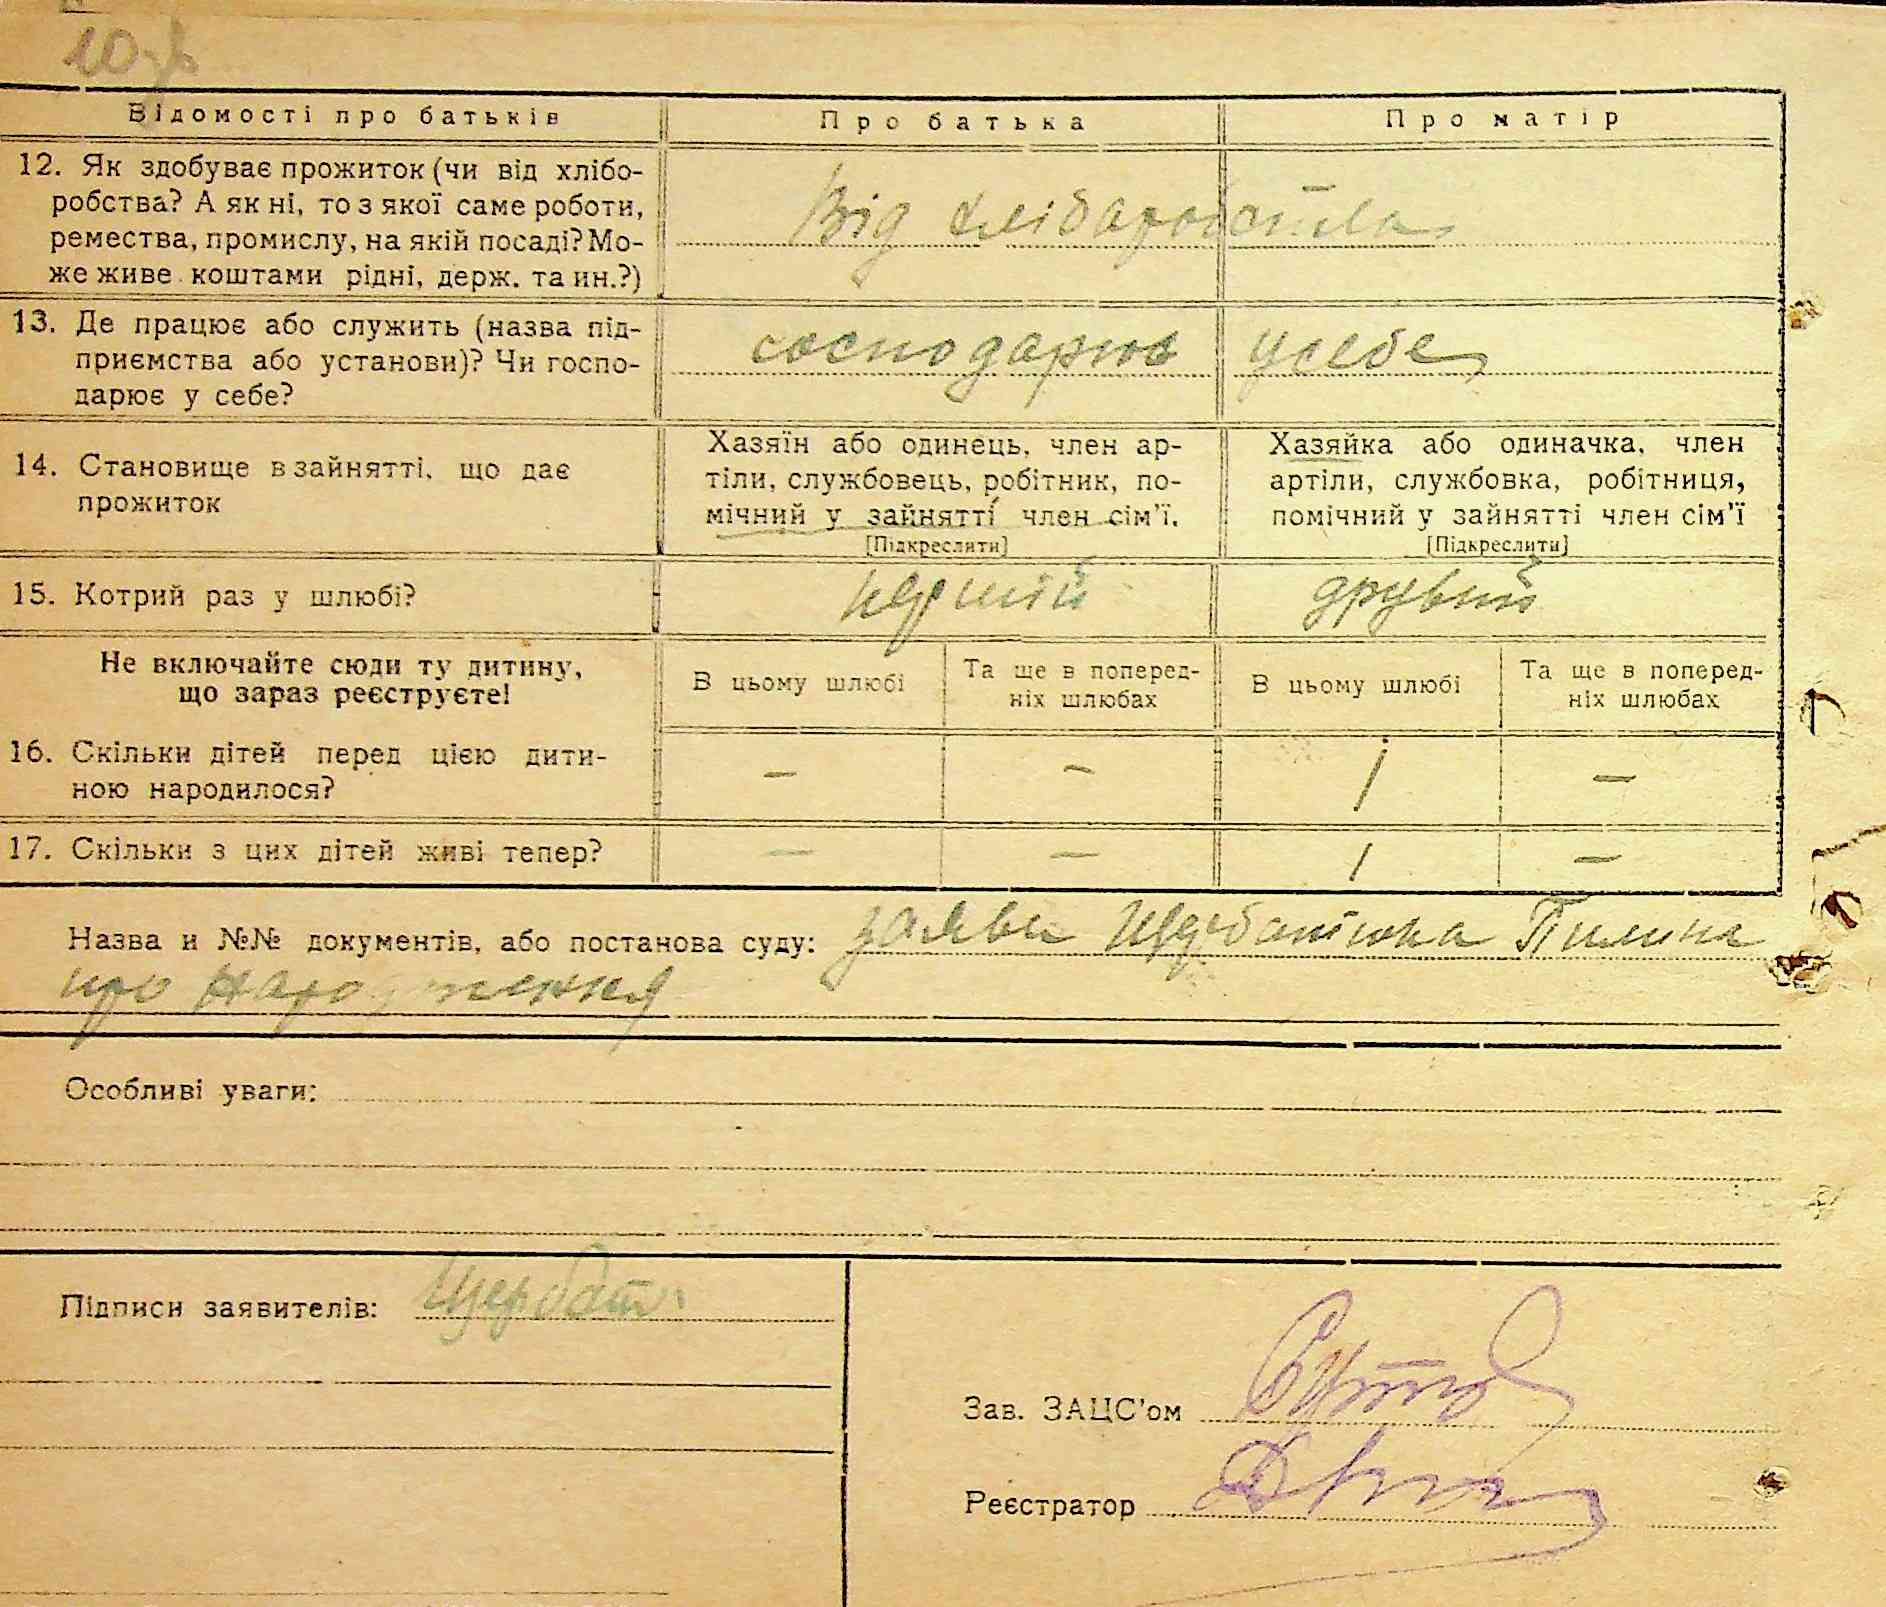 Відомості про батьків Про батька Про матір
12. Як здобуває прожиток (чи від хлібо-
робства? А як ні, то з якої саме роботи,
ремества, промислу, на якій посаді? Мо-
же живе коштами рідні, держ. та ин.?)
Від хлібаробства
13. Де працює або служить (назва під-
приємства або установи)? Чи госпо-
дарює у себе?
господарює усебе
14. Становище в зайнятті, що дає
прожиток
Хазяїн або одинець, член ар-
тіли, службовець, робітник, по-
мічний у зайнятті член сім'ї.
[Підкреслити]
Хазяйка або одиначка, член
артіли, службовка, робітниця,
помічний у зайнятті член сім'ї
[Підкреслити]
15. Котрий раз у шлюбі? перший другий
Не включайте сюди ту дитину,
що зараз реєструєте!
В цьому шлюбі
Та ще в поперед-
ніх шлюбах
В цьому шлюбі
Та ще в поперед-
ніх шлюбах
16. Скільки дітей перед цією дити-
ною народилося?
– – 1 –
17. Скільки з цих дітей живі тепер? – – 1 –
Назва и №№ документів, або постанова суду: заява Щербатюка Пилипа
про народження
Особливі уваги:
Підписи заявителів: Щербат
Зав. ЗАЦС'ом
Реєстратор